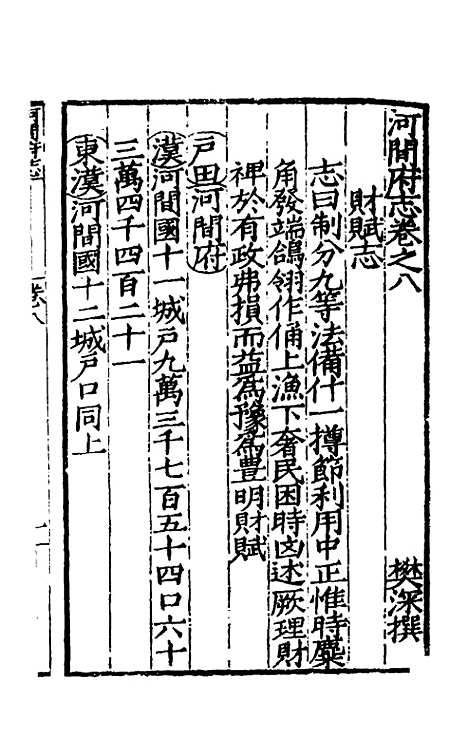 河間府志卷之八
樊深撰
財賦志
志曰制分九等法備什一撙節利用中正惟時麋
角發端鴿翎作俑上漁下奢民困時凶述厥理財
裨於有政弗損而益為豫為豐明財賦
戶田河間府
漢河間國十一城戶九萬三千七百五十四口六十
三萬四千四百二十一
東漢河間國十二城戶口同上
卷八